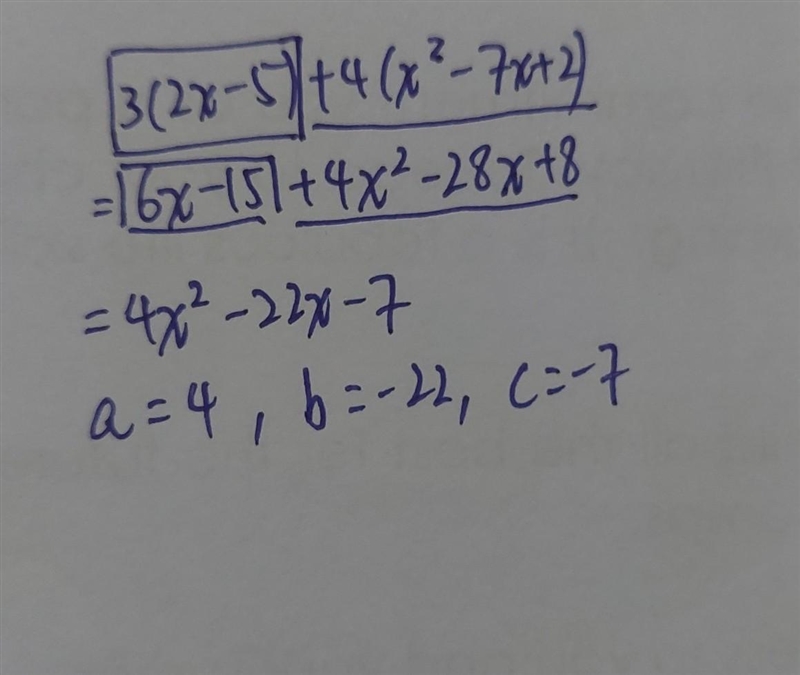 3(2x-5)+4(x²-7x+2)
=6x-15+4x²-28x+8
=4x²-22x-7
a=4, b=-22, c=-7